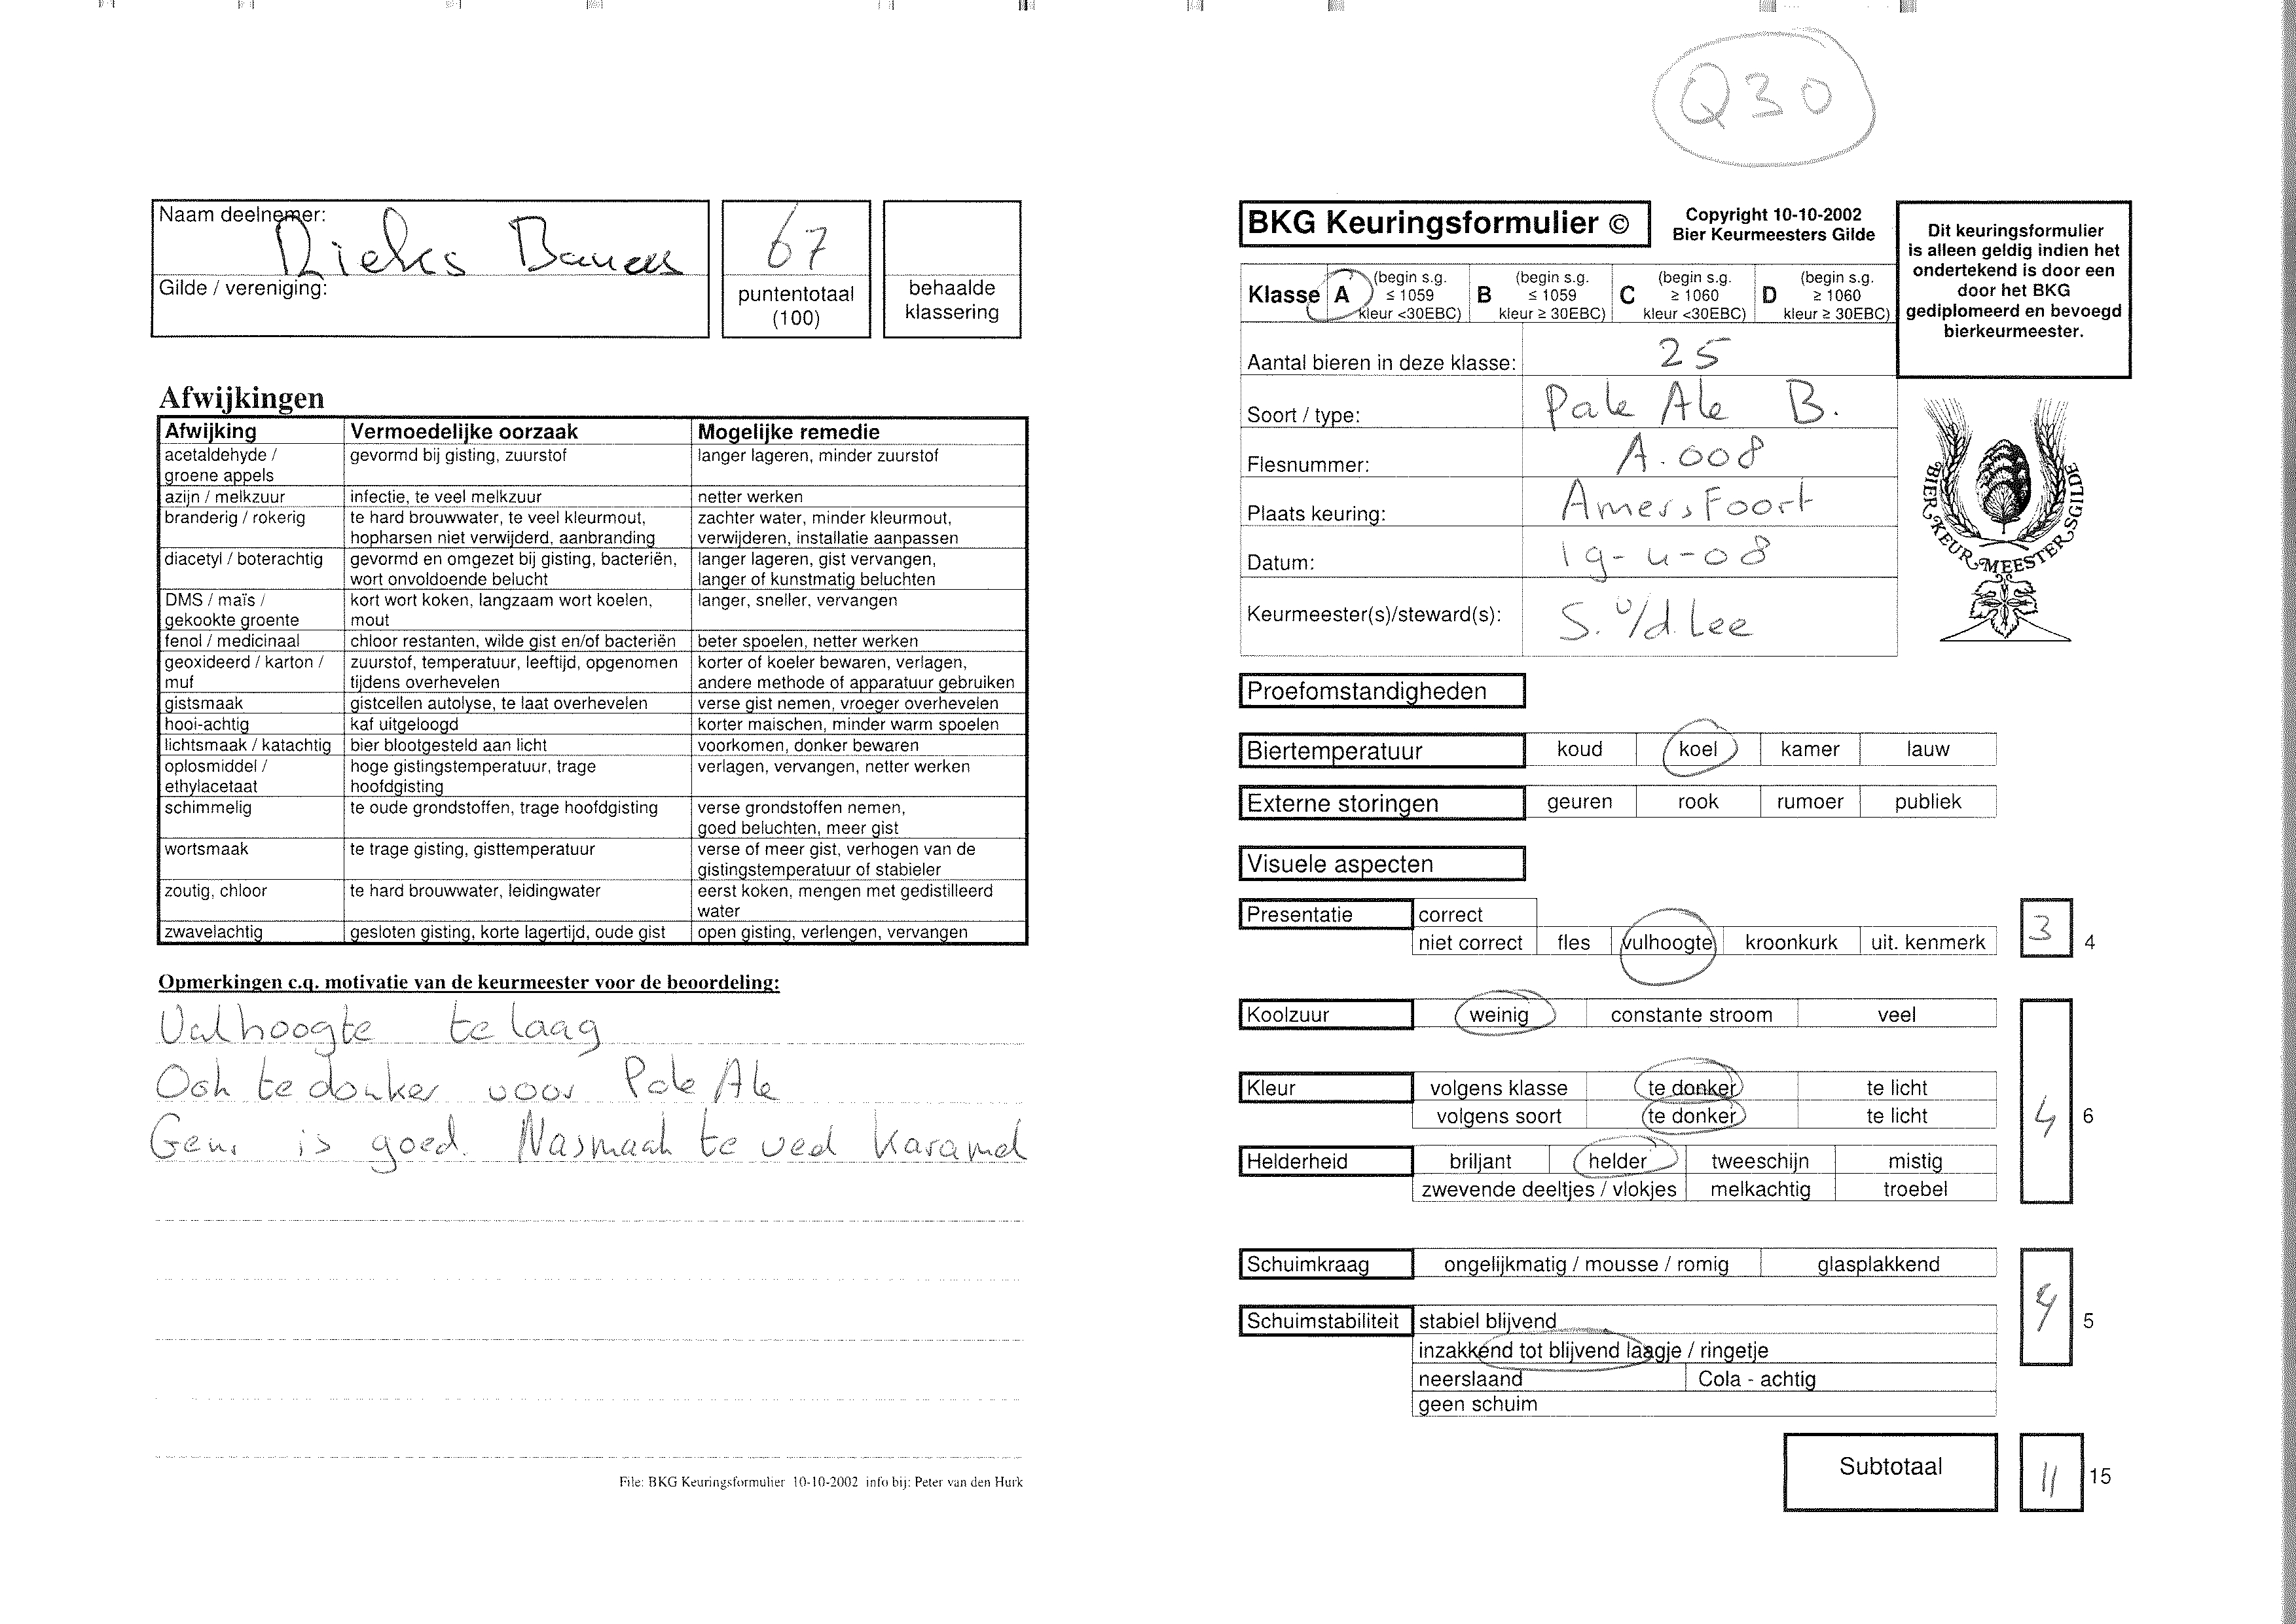 Q30
Naam deelnemer:
Dieks
Gilde / vereniging:
67
puntentotaal
(100)
behaalde
klassering
Afwijkingen
Afwijking Vermoedelijke oorzaak Mogelijke remedie
acetaldehyde / gevormd bij gisting, zuurstof langer lageren, minder zuurstof
groene appels
azijn / melkzuur infectie, te veel melkzuur netter werken
branderig / rokerig te hard brouwwater, te veel kleurmout, zachter water, minder kleurmout,
hopharsen niet verwijderd, aanbranding verwijderen, installatie aanpassen
diacetyl / boterachtig gevormd en omgezet bij gisting, bacteriën, langer lageren, gist vervangen,
wort onvoldoende belucht langer of kunstmatig beluchten
DMS / maïs / kort wort koken, langzaam wort koelen, langer, sneller, vervangen
gekookte groente mout
fenol / medicinaal chloor restanten, wilde gist en/of bacteriën beter spoelen, netter werken
geoxideerd / karton / zuurstof, temperatuur, leeftijd, opgenomen korter of koeler bewaren, verlagen,
muf tijdens overhevelen andere methode of apparatuur gebruiken
gistsmaak gistcellen autolyse, te laat overhevelen verse gist nemen, vroeger overhevelen
hooi-achtig kaf uitgeloogd korter maischen, minder warm spoelen
lichtsmaak / katachtig bier blootgesteld aan licht voorkomen, donker bewaren
oplosmiddel / hoge gistingstemperatuur, trage verlagen, vervangen, netter werken
ethylacetaat hoofdgisting
schimmelig te oude grondstoffen, trage hoofdgisting verse grondstoffen nemen,
goed beluchten, meer gist
wortsmaak te trage gisting, gisttemperatuur verse of meer gist, verhogen van de
gistingstemperatuur of stabieler
zoutig, chloor te hard brouwwater, leidingwater eerst koken, mengen met gedistilleerd
water
zwavelachtig gesloten gisting, korte lagertijd, oude gist open gisting, verlengen, vervangen
Opmerkingen c.q. motivatie van de keurmeester voor de beoordeling:
Vulhoogte te laag
Ook te donker voor Pale Ale
Geur is goed. Nasmaak te veel Karamel
File: BKG Keuringsformulier 10-10-2002 info bij: Peter van den Hurk
BKG Keuringsformulier ©
Copyright 10-10-2002
Bier Keurmeesters Gilde
Dit keuringsformulier
is alleen geldig indien het
ondertekend is door een
door het BKG
gediplomeerd en bevoegd
bierkeurmeester.
Klasse A (begin s.g. ≤ 1059 kleur <30EBC) B (begin s.g. ≤ 1059 kleur ≥ 30EBC) C (begin s.g. ≥ 1060 kleur <30EBC) D (begin s.g. ≥ 1060 kleur ≥ 30EBC)
Aantal bieren in deze klasse: 25
Soort / type: Pale Ale B.
Flesnummer: A.008
Plaats keuring: Amersfoort
Datum: 19-4-08
Keurmeester(s)/steward(s): S. v/d. Lee
BIER KEURMEESTERSGILDE
Proefomstandigheden
Biertemperatuur koud koel kamer lauw
Externe storingen geuren rook rumoer publiek
Visuele aspecten
Presentatie correct
niet correct fles vulhoogte kroonkurk uit. kenmerk 3 4
Koolzuur weinig constante stroom veel
Kleur volgens klasse te donker te licht
volgens soort te donker te licht 4 6
Helderheid briljant helder tweeschijn mistig
zwevende deeltjes / vlokjes melkachtig troebel
Schuimkraag ongelijkmatig / mousse / romig glasplakkend
Schuimstabiliteit stabiel blijvend 4 5
inzakkend tot blijvend laagje / ringetje
neerslaand Cola - achtig
geen schuim
Subtotaal 11 15